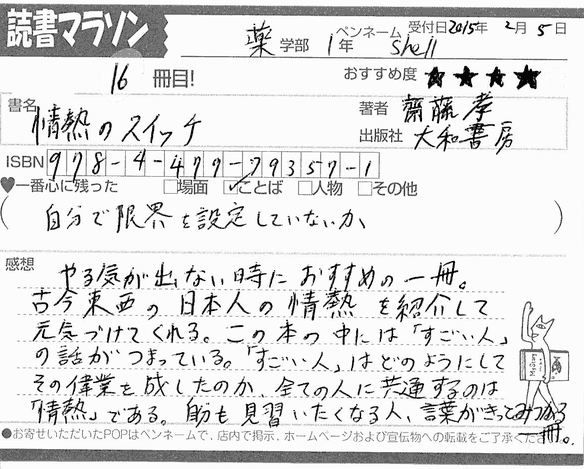 読書マラソン
薬 学部 1年 ペンネーム shell 受付日2015年 2月 5日
16 冊目! おすすめ度 ★★★★
書名 情熱のスイッチ 著者 齋藤孝
出版社 大和書房
ISBN 978-4-479-79357-1
♥一番心に残った □場面 ☑ことば □人物 □その他
(自分で限界を設定していないか)
感想 やる気が出ない時におすすめの一冊。
古今東西の日本人の情熱を紹介して
元気づけてくれる。この本の中には「すごい人」
の話がつまっている。「すごい人」はどのようにして
その偉業を成したのか、全ての人に共通するのは
「情熱」である。自分も見習いたくなる人、言葉がきっとみつかる
一冊。
●お寄せいただいたPOPはペンネームで、店内で掲示、ホームページおよび宣伝物への転載をご了承くださ